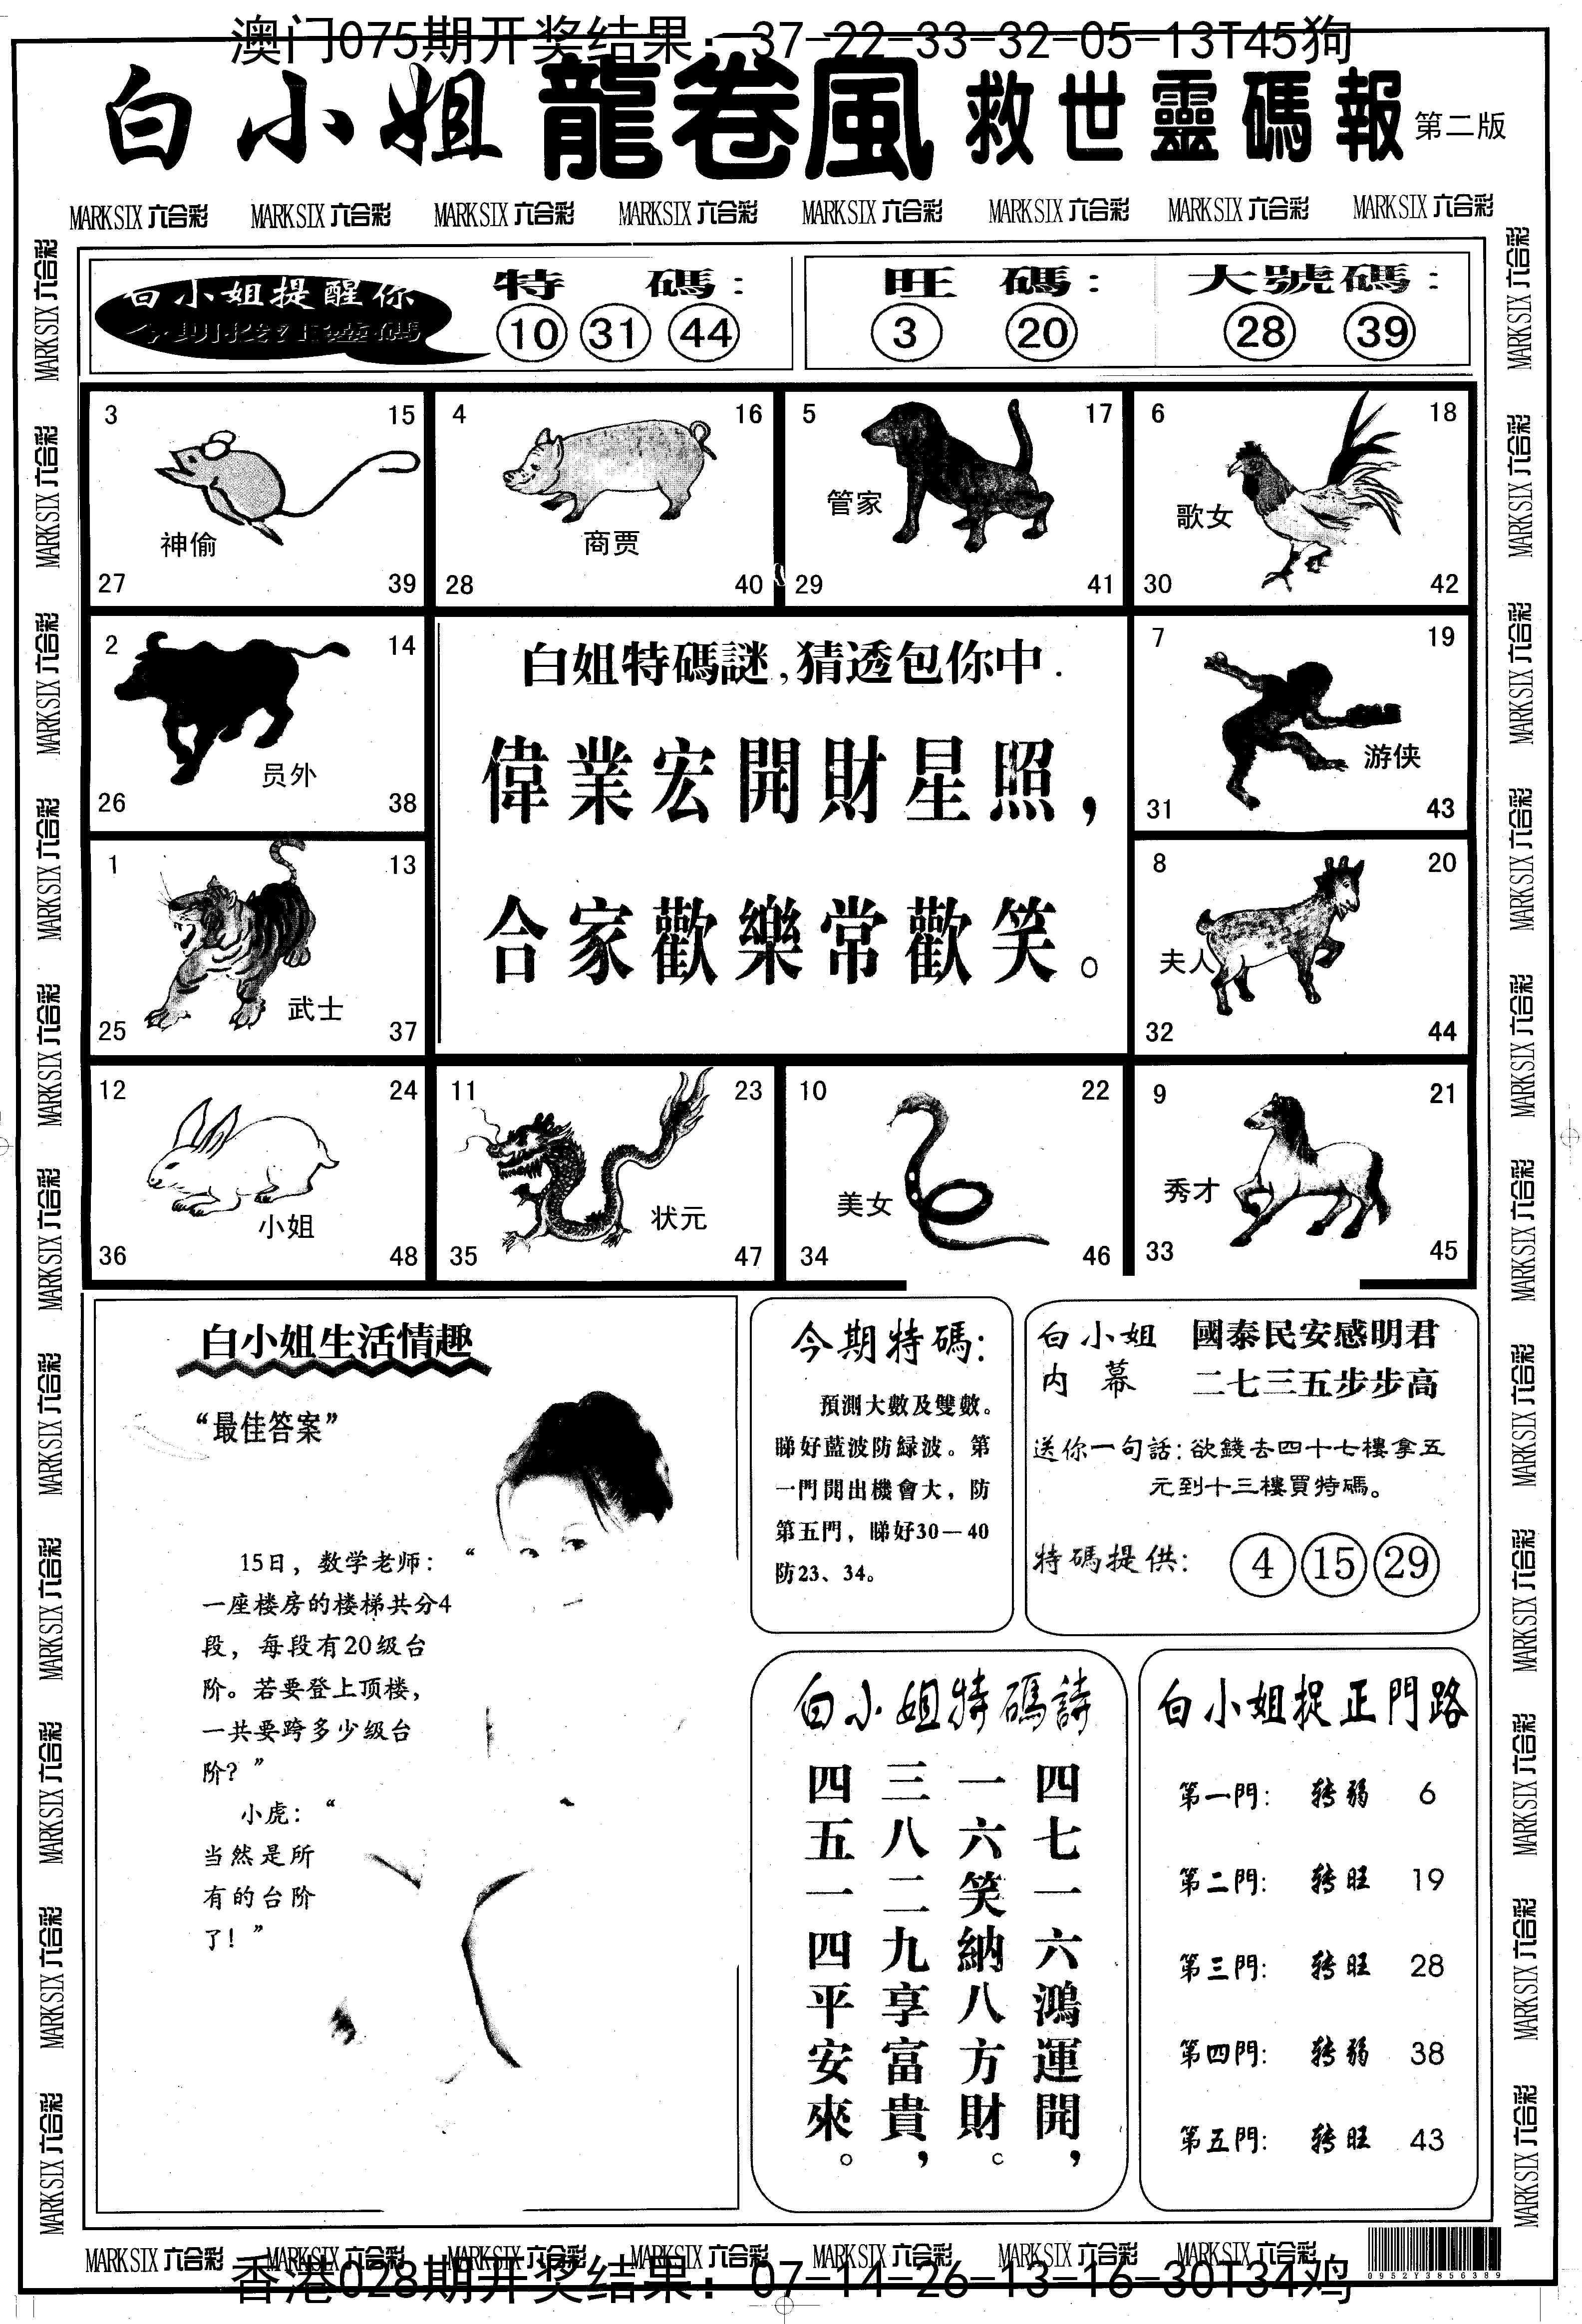 澳门075期开奖结果：37-22-33-32-05-13T45狗
白小姐 龍卷風 救世靈碼報 第二版
MARK SIX 六合彩 MARK SIX 六合彩 MARK SIX 六合彩 MARK SIX 六合彩 MARK SIX 六合彩 MARK SIX 六合彩 MARK SIX 六合彩 MARK SIX 六合彩
白小姐提醒你
特碼：
10 31 44
旺碼：
3 20
大號碼：
28 39
3 15
神偷
27 39
4 16
商贾
28 40
5 17
管家
29 41
6 18
歌女
30 42
2 14
员外
26 38
白姐特碼謎,猜透包你中.
偉業宏開財星照，
合家歡樂常歡笑。
7 19
游侠
31 43
1 13
武士
25 37
8 20
夫人
32 44
12 24
小姐
36 48
11 23
状元
35 47
10 22
美女
34 46
9 21
秀才
33 45
白小姐生活情趣
“最佳答案”
15日，数学老师：“
一座楼房的楼梯共分4
段，每段有20级台
阶。若要登上顶楼，
一共要跨多少级台
阶？”
小虎：“
当然是所
有的台阶
了！”
今期特碼：
預測大數及雙數。
睇好藍波防緑波。第
一門開出機會大，防
第五門，睇好30—40
防23、34。
白小姐 國泰民安感明君
内幕 二七三五步步高
送你一句話：欲錢去四十七樓拿五
元到十三樓買特碼。
特碼提供： 4 15 29
白小姐特碼詩
四七一六鴻運開，
一六笑納八方財。
三八二九享富貴，
四五一四平安來。
白小姐捉正門路
第一門： 转弱 6
第二門： 转旺 19
第三門： 转旺 28
第四門： 转弱 38
第五門： 转旺 43
MARK SIX 六合彩 MARK SIX 六合彩 MARK SIX 六合彩 MARK SIX 六合彩 MARK SIX 六合彩 MARK SIX 六合彩 MARK SIX 六合彩
0952Y3856389
香港028期开奖结果：07-14-26-13-16-30T34鸡